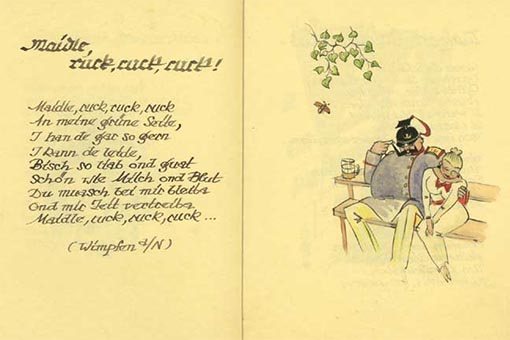 Maidle,
ruck, ruck, ruck!
Maidle, ruck, ruck, ruck
An meine grüne Seite,
I han de gar so gern
I kann de leide,
Bisch so liab ond guat
Schön wie Milch ond Blut
Du muasch bei mir bleiba
Ond mir Zeit vertreiba
Maidle, ruck, ruck, ruck ...
(Wimpfen a/N)